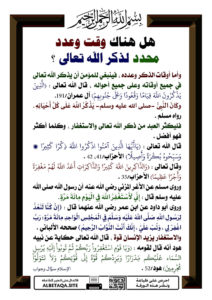 بسم الله الرحمن الرحيم
هل هناك وقت وعدد
محدد لذكر الله تعالى ؟
وأما أوقات الذكر وعدده ، فينبغي للمؤمن أن يذكر الله تعالى
في جميع أوقاته وعلى جميع أحواله . قال الله تعالى : (الَّذِينَ
يَذْكُرُونَ اللَّهَ قِيَامًا وَقُعُودًا وَعَلَى جُنُوبِهِمْ) آل عمران/191.
وكَانَ النَّبِيُّ -صلى الله عليه وسلم- يَذْكُرُ اللَّهَ عَلَى كُلِّ أَحْيَانِهِ .
رواه مسلم .
فليكثر العبد من ذكر الله تعالى والاستغفار ، وكلما أكثر
فهو أفضل .
قال الله تعالى : (يَا أَيُّهَا الَّذِينَ آمَنُوا اذْكُرُوا اللَّهَ ذِكْرًا كَثِيرًا *
وَسَبِّحُوهُ بُكْرَةً وَأَصِيلًا) الأحزاب/41 ، 42 .
وقال تعالى : (وَالذَّاكِرِينَ اللَّهَ كَثِيرًا وَالذَّاكِرَاتِ أَعَدَّ اللَّهُ لَهُمْ مَغْفِرَةً
وَأَجْرًا عَظِيمًا) الأحزاب/35 .
وروى مسلم عن الأغر المزني رضي الله عنه أن رسول الله صلى الله
عليه وسلم قال : إِنِّي لَأَسْتَغْفِرُ اللَّهَ فِي الْيَوْمِ مِائَةَ مَرَّةٍ .
وروى أبو داود عن ابن عمر رضي الله عنهما قال : إِنْ كُنَّا لَنَعُدُّ
لِرَسُولِ اللَّهِ صَلَّى اللَّهُ عَلَيْهِ وَسَلَّمَ فِي الْمَجْلِسِ الْوَاحِدِ مِائَةَ مَرَّةٍ : رَبِّ
اغْفِرْ لِي وَتُبْ عَلَيَّ
صححه الألباني .
والاستغفار يزيد الإنسان قوة . قال الله تعالى حكاية عن نبيه
هود عليه السلام أنه قال لقومه : (وَيَا قَوْمِ اسْتَغْفِرُوا رَبَّكُمْ ثُمَّ تُوبُوا إِلَيْهِ يُرْسِلِ
السَّمَاءَ عَلَيْكُمْ مِدْرَارًا وَيَزِدْكُمْ قُوَّةً إِلَى قُوَّتِكُمْ وَلَا تَتَوَلَّوْا
مُجْرِمِينَ) هود/52 .
الإسلام سؤال وجواب
ALBETAQA.SITE